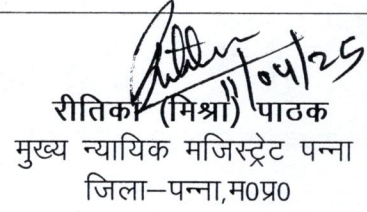 11/04/25
रीतिका (मिश्रा) पाठक
मुख्य न्यायिक मजिस्ट्रेट पन्ना
जिला–पन्ना,म0प्र0